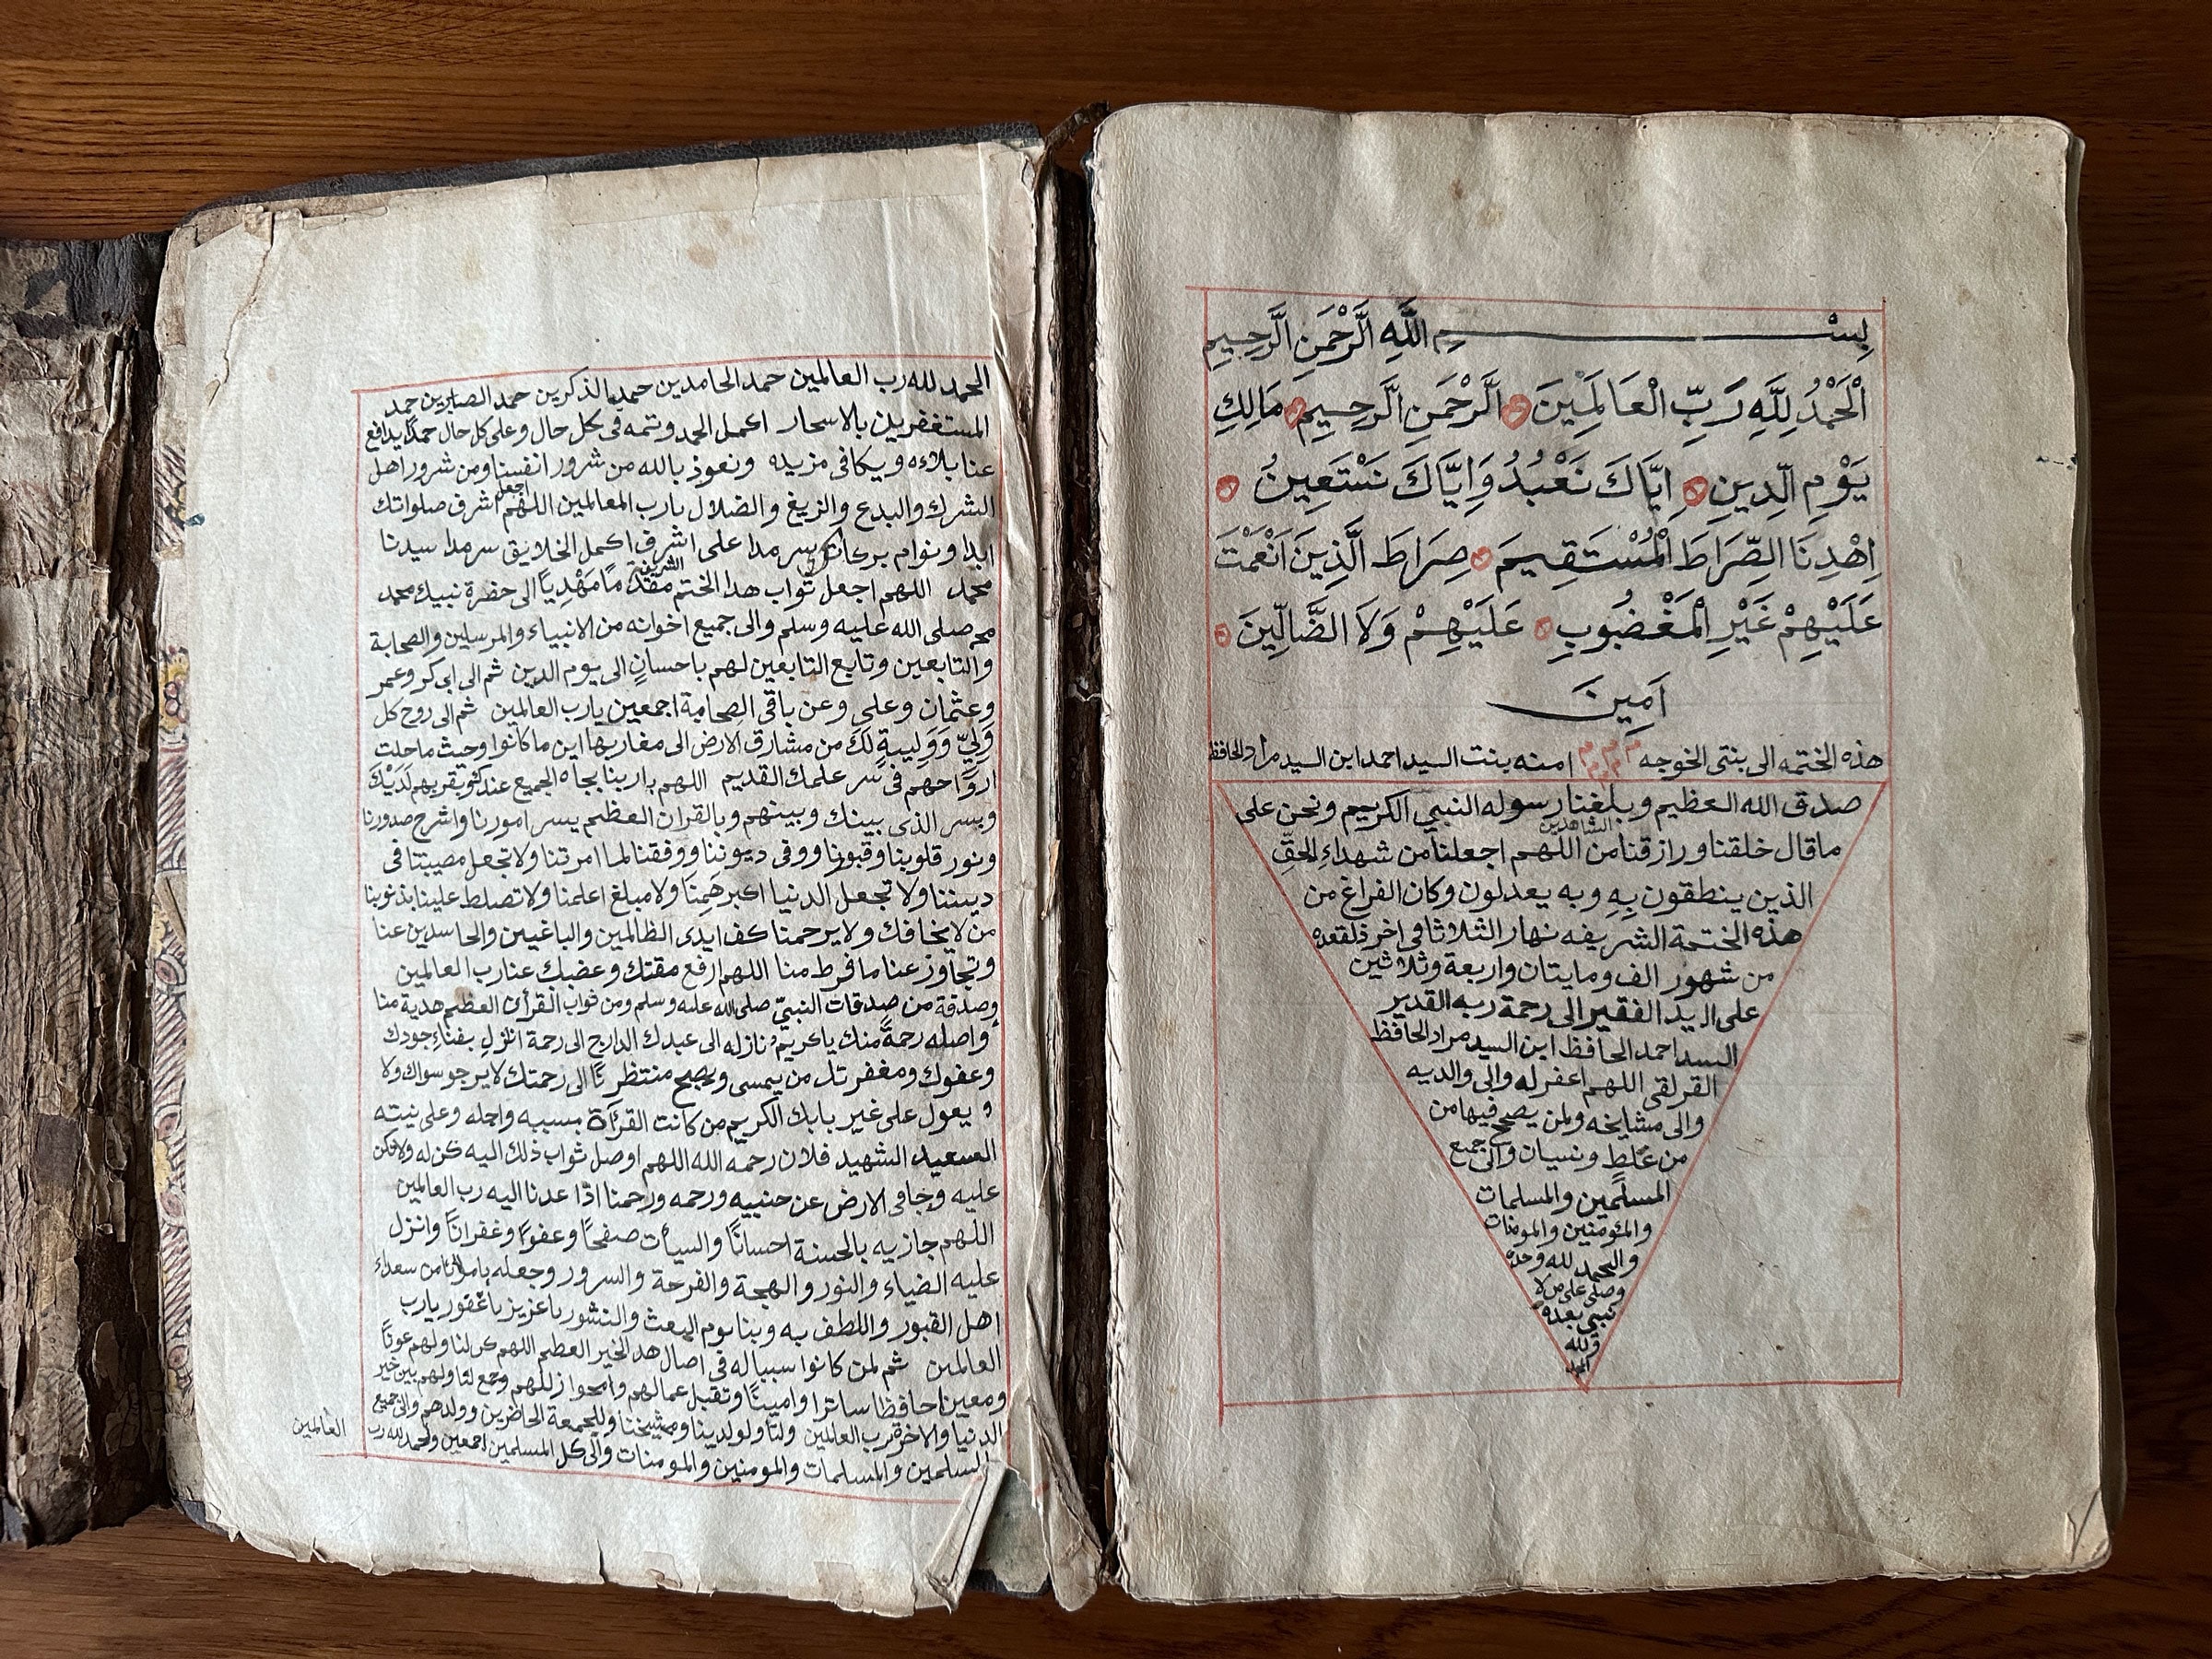 بِسْمِ اللَّهِ الرَّحْمَنِ الرَّحِيمِ
اَلْحَمْدُ لِلَّهِ رَبِّ الْعَالَمِينَ الرَّحْمَنِ الرَّحِيمِ مَالِكِ
يَوْمِ الدِّينِ اِيَّاكَ نَعْبُدُ وَاِيَّاكَ نَسْتَعِينُ
اِهْدِنَا الصِّرَاطَ الْمُسْتَقِيمَ صِرَاطَ الَّذِينَ اَنْعَمْتَ
عَلَيْهِمْ غَيْرِ الْمَغْضُوبِ عَلَيْهِمْ وَلَا الضَّالِّينَ
اَمِينَ
هذه الختمه الى بنتى الخوجه امنه بنت السيد احمد ابن السيد مراد الحافظ
صدق الله العظيم وبلغنا رسوله النبي الكريم ونحن على
ماقال خلقنا ورازقنا من الشاهدين اللهم اجعلنا من شهداءِ الحقِّ
الذين ينطقون بِهِ وبه يعدلون وكان الفراغ من
هذه الختمة الشريفه نهار الثلاثا فى اخر ذلقعده
من شهور الف ومايتان واربعة وثلاثين
على اليد الفقير الى رحمة ربه القدير
السيد احمد الحافظ ابن السيد مراد الحافظ
القرلقى اللهم اغفر له والى والديه
والى مشايخه ولمن يصحح فيها من
من غلط ونسيان والى جميع
المسلمين والمسلمات
والمؤمنين والمومنات
والحمد لله وحده
وصلى على من لا
نبي بعده
ولله
الحمد
الحمد لله رب العالمين حمد الحامدين حمد الذكرين حمد الصابرين حمد
المستغفرين بالاسحار اعمل الحمد وتمه فى كل حال وعلى كل حال حمدًا يدافع
عنا بلاءه ويكافى مزيده ونعوذ بالله من شرور انفسنا ومن شرور اهل
الشرك والبدع والزيغ والضلال يارب العالمين اللهم اجعل اشرف صلواتك
ابدا ونوام بركاتك سرمدا على اشرف اكمل الخلايق سرمدا سيدنا
محمد اللهم اجعل ثواب هذا الختم الشريف مقدمًا مَهْدِيًا الى حضرة نبيك محمد
محمد صلى الله عليه وسلم والى جميع اخوانه من الانبياء والمرسلين والصحابة
والتابعين وتابع التابعين لهم باحسانٍ الى يوم الدين ثم الى ابى بكر وعمر
وعثمان وعلى وعن باقى الصحابة اجمعين يارب العالمين ثم الى روح كل
وَلِيٍّ وَوَلِيبةٍ لَكَ من مشارق الارض الى مغاربها اين ما كانوا وحيث ما حلت
اروَاحهم فى سر علمك القديم اللهم ياربنا بجاه الجميع عندك وبقربهم لَدَيْكَ
وبسر الذى بينك وبينهم وبالقران العظيم يسر امورنا واشرح صدورنا
ونور قلوبنا وقبورنا ووفى ديوننا ووفقنا لما امرتنا ولا تجعل مصيبتنا فى
ديننا ولا تجعل الدنيا اكبر هَمِنَا ولا مبلغ اعلمنا ولا تصلط علينا بذنوبنا
من لا يخافك ولا يرحمنا كف ايدى الظالمين والباغيين والحاسدين عنا
وتجاوز عنا ما فرط منا اللهم ارفع مقتك وغضبك عنا رب العالمين
وصدقة من صدقات النبيّ صلى الله عليه وسلم ومن ثواب القرأن العظيم هدية منا
واصله رحمةً منك ياكريم نازله الى عبدك الدارج الى رحمة انزل بفناءِ جودك
وعفوك ومغفرتك من يمسى ويصبح منتظرنًا الى رحمتك لا يرجو سواك ولا
ويعول على غير بابك الكريم من كانت القرَأة بسببه واجله وعلى نيته
السعيد الشهيد فلان رحمه الله اللهم اوصل ثواب ذلك اليه كن له ولا تكن
عليه وجافى الارض عن جنبيه ورحمه ورحمنا اذا عدنا اليه رب العالمين
اللهم جازيه بالحسنة احسانًا والسيأت صفحًا وعفوًا وغفرانًا وانزل
عليه الضياء والنور والبهجة والفرحة والسرور وجعله من سعداء
اهل القبور واللطف به وبنا يوم البعث والنشور ياعزيز ياغفور يارب
العالمين ثم لمن كانوا سبباله فى اصال هد الخير العظيم اللهم كن لنا ولهم عونًا
ومعين حافظا ساترا وامينًا وتقبل عمالهم للهم وجمع لنا ولهم بين خير
الدنيا والاخرة يرب العالمين ولنا ولولدينا ومشيخنا وللجمعة الحاضرين وولدهم والى جميع
المسلمين والمسلمات والمومنين والمومنات والى كل المسلمين اجمعين والحمد لله رب
العالمين